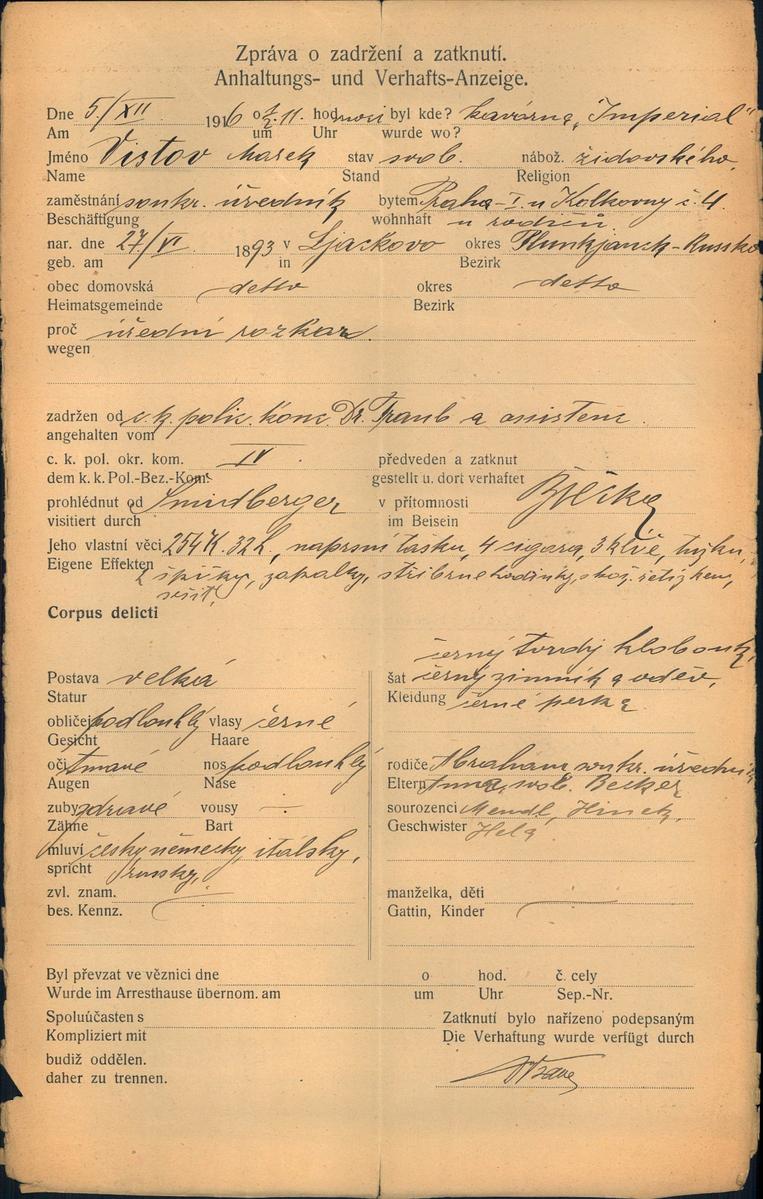 Zpráva o zadržení a zatknutí.
Anhaltungs- und Verhafts-Anzeige.
Dne 5/XII 1916 o ½11 hod. noci byl kde? kavárna „Imperial“
Am um Uhr wurde wo?
Jméno Vistov Marek stav svob. nábož. židovského
Name Stand Religion
zaměstnání soukr. úředník bytem Praha-I. u Kolkovny č. 4.
Beschäftigung wohnhaft u rodičů
nar. dne 27/VI 1893 v Ljackovo okres
geb. am in Bezirk
obec domovská detto okres detto
Heimatsgemeinde Bezirk
proč úřední rozkaz.
wegen
zadržen od c. k. polic. konc. Dr. Traub a asistenc.
angehalten vom
c. k. pol. okr. kom. IV předveden a zatknut
dem k. k. Pol.-Bez.-Kom. gestellt u. dort verhaftet
prohlédnut od Smidberger v přítomnosti
visitiert durch im Beisein
Jeho vlastní věci 254 K. 32 h., náprsní tašku, 4 cigara, 3 klíče, tužku,
Eigene Effekten 2 špičky, zápalky, stříbrné hodinky, s kož. řetízkem,
sešit,
Corpus delicti
černý tvrdý klobouk,
Postava velká šat černý zimník a oděv,
Statur Kleidung černé
obličej podlouhlý vlasy černé
Gesicht Haare
oči tmavé nos podlouhlý rodiče Abraham, soukr. úředník
Augen Nase Eltern Anna, roz. Becker
zuby zdravé vousy – sourozenci Mendl, Hinek,
Zähne Bart Geschwister Hela
mluví česky, německy, italsky,
spricht rusky,
zvl. znam. – manželka, děti –
bes. Kennz. Gattin, Kinder
Byl převzat ve věznici dne o hod. č. cely
Wurde im Arresthause übernom. am um Uhr Sep.-Nr.
Spoluúčasten s Zatknutí bylo nařízeno podepsaným
Kompliziert mit Die Verhaftung wurde verfügt durch
budiž oddělen.
daher zu trennen.